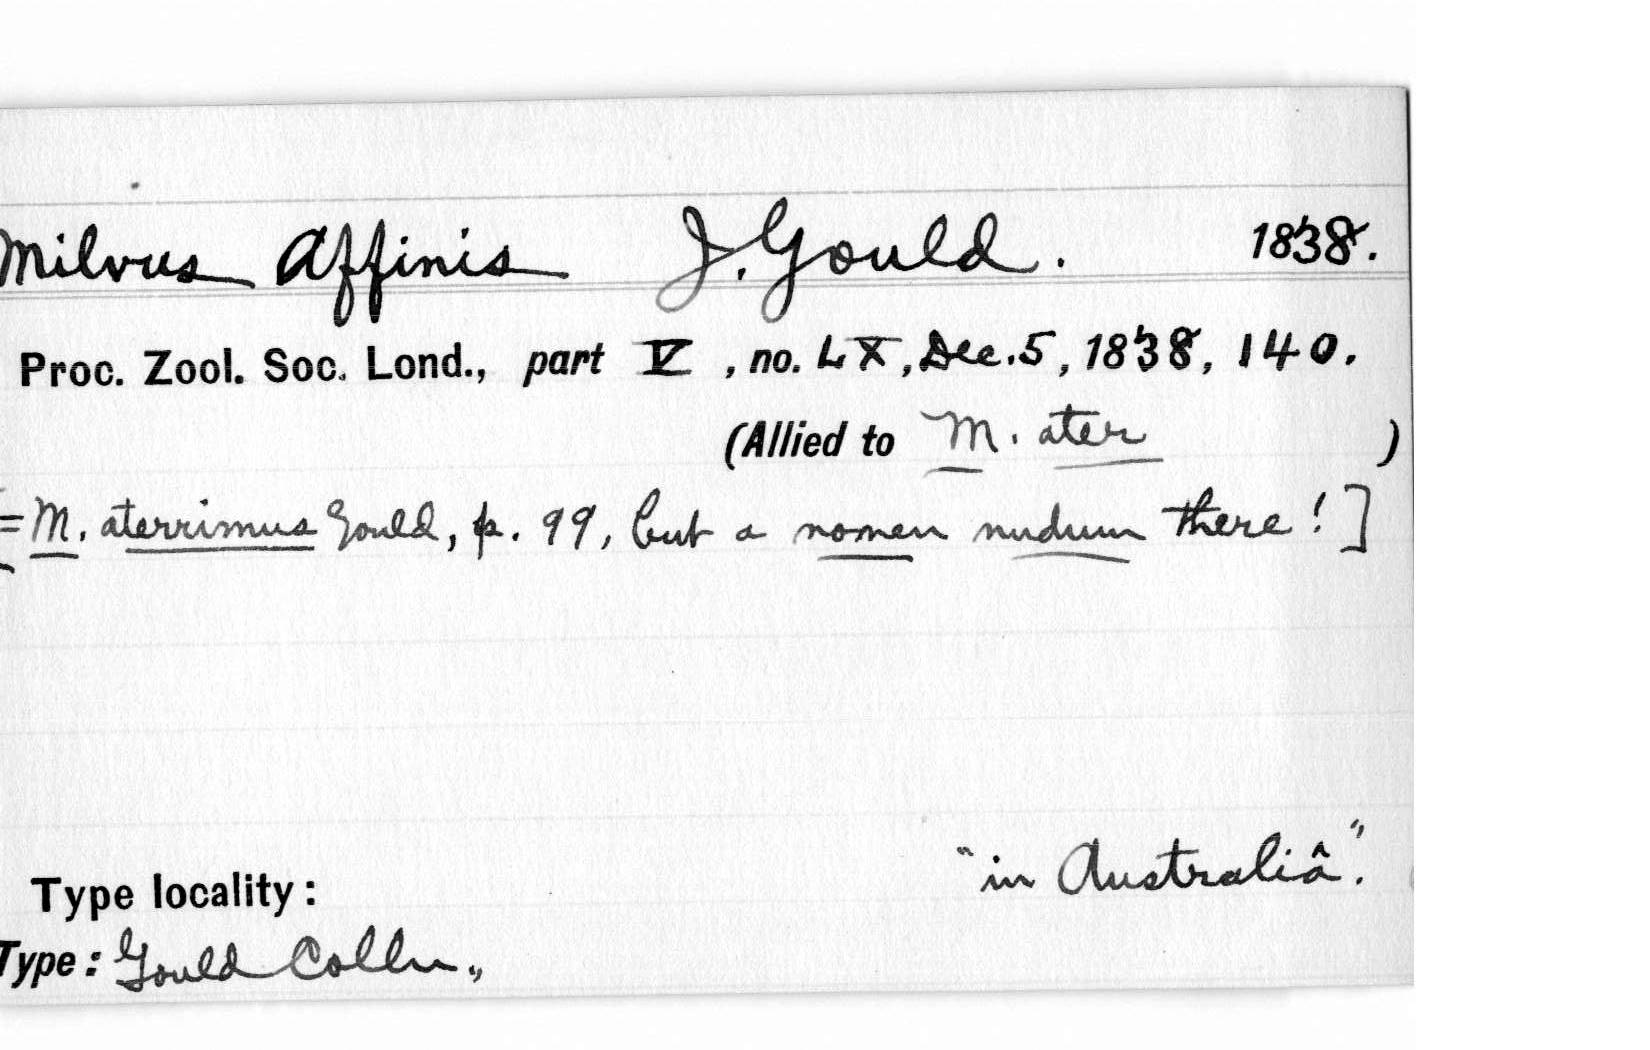 Milvus Affinis J. Gould. 1838.
Proc. Zool. Soc. Lond., part V, no. LX, Dec. 5, 1838, 140.
(Allied to M. ater )
[= M. aterrimus Gould, p. 99, but a nomen nudum there!]
"in Australiâ".
Type locality:
Type: Gould Colln.,